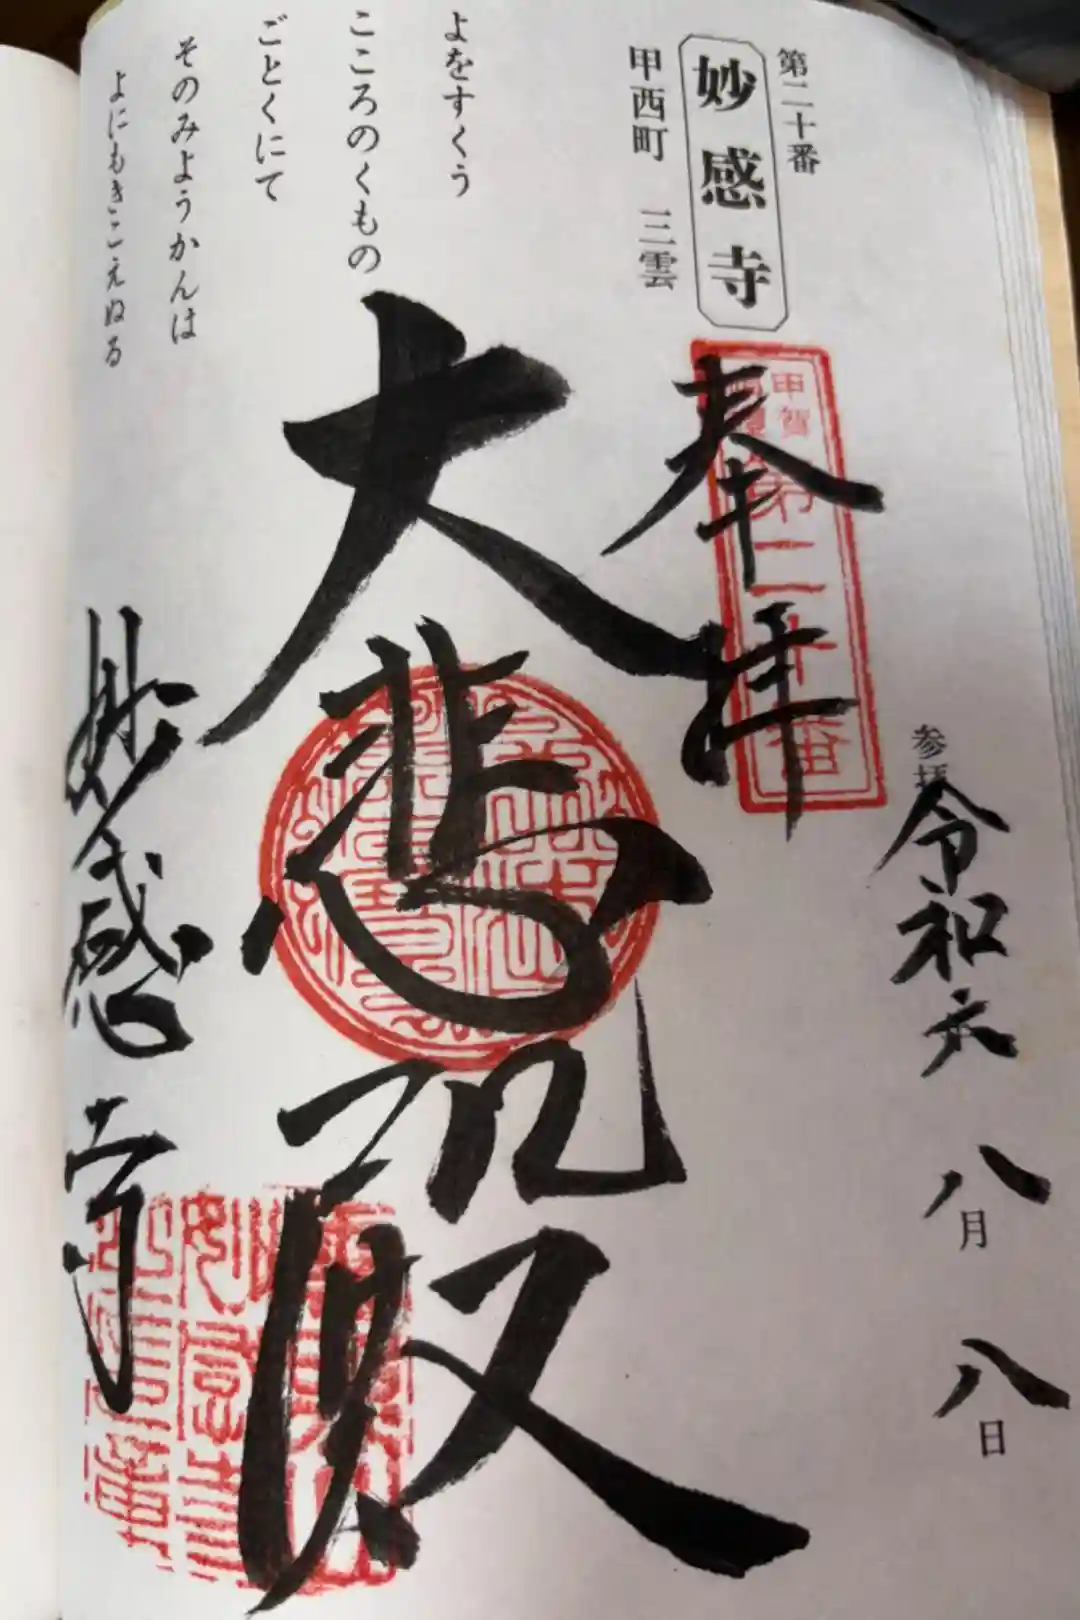 第二十番
妙感寺
甲西町 三雲
よをすくう
こころのくもの
ごとくにて
そのみようかんは
よにもきこえぬる
奉拝
甲賀
第二十番
大悲殿
妙感寺
参拝
令和六
八月
八日